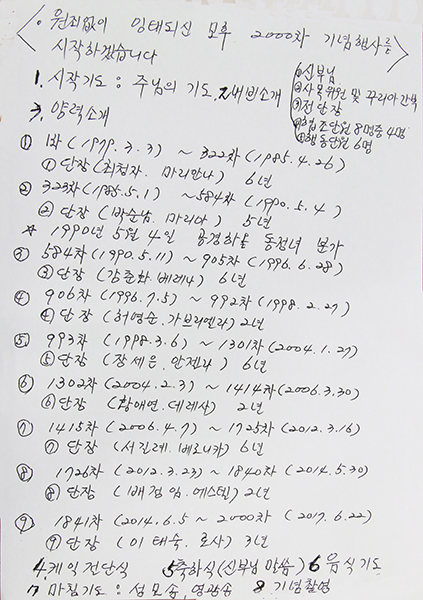 〈 · 원죄없이 잉태되신 모후 2000차 기념행사를
시작하겠습니다 〉
1. 시작기도 : 주님의 기도, 2. 내빈소개
① 신부님
② 사목위원 및 꾸리아 간부
③ 전단장
④ 협조단원 8명중 4명
⑤ 행동단원 6명
3. 약력소개
① 1차 (1979. 3. 3) ~ 322차 (1985. 4. 26)
① 단장 (최정자. 마리안나) 6년
② 323차 (1985. 5. 1) ~ 584차 (1990. 5. 4)
② 단장 (박순남. 마리아) 5년
* 1990년 5월 4일 공경하올 동정녀 분가
③ 584차 (1990. 5. 11) ~ 905차 (1996. 6. 28)
③ 단장 (김준화. 베레나) 6년
④ 906차 (1996. 7. 5) ~ 992차 (1998. 2. 27)
④ 단장 (허영순. 가브리엘라) 2년
⑤ 993차 (1998. 3. 6) ~ 1301차 (2004. 1. 27)
⑤ 단장 (장세은. 안젤라) 6년
⑥ 1302차 (2004. 2. 3) ~ 1414차 (2006. 3. 30)
⑥ 단장 (황애연. 데레사) 2년
⑦ 1415차 (2006. 4. 7) ~ 1725차 (2012. 3. 16)
⑦ 단장 (서길례. 베로니카) 6년
⑧ 1726차 (2012. 3. 23) ~ 1840차 (2014. 5. 30)
⑧ 단장 (배점임. 에스텔) 2년
⑨ 1841차 (2014. 6. 5 ~ 2000차 (2017. 6. 22)
⑨ 단장 (이태숙. 로사) 3년
4. 케익 전단식 5 축하식 (신부님 말씀) 6 음식기도
7 마침기도 : 성모송, 영광송 8 기념촬영